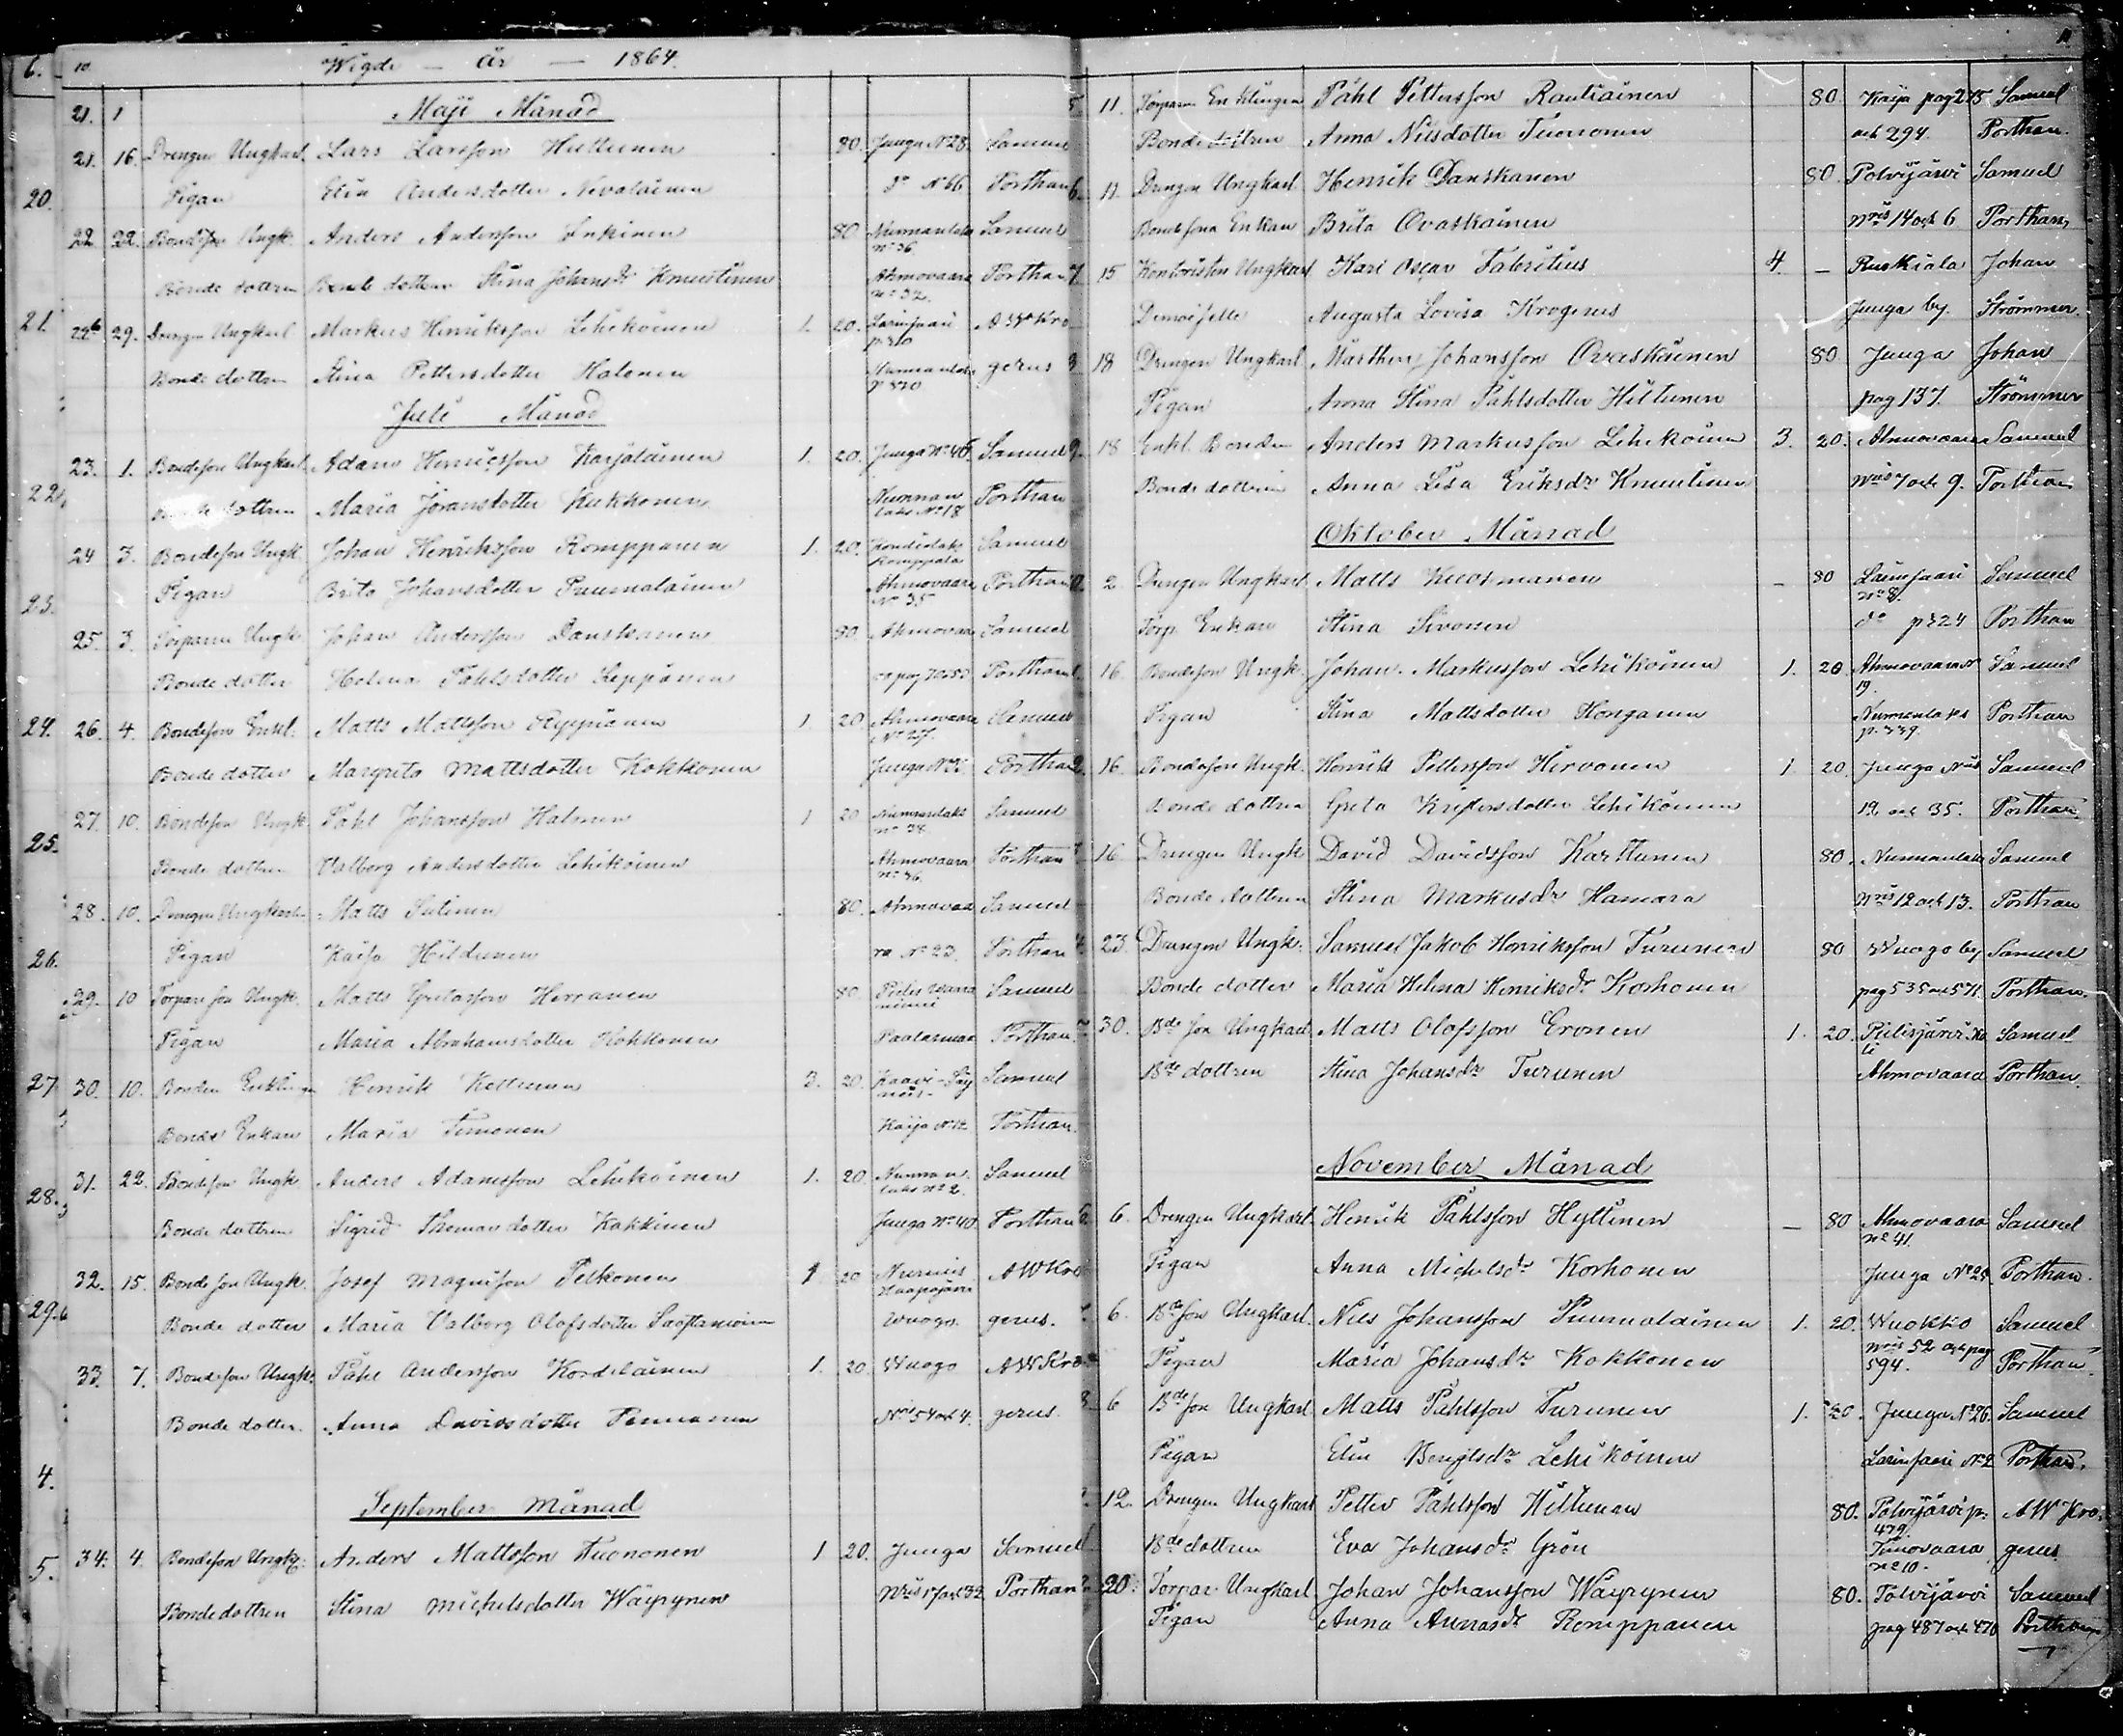 10. Wigde — År — 1864.
21. 1 Maji Månad
21. 16. Drengen Ungkarl. Lars Larsson Huttunen 80. Juuga N° 28. Samuel
Pigan Elin Andersdotter Nevalainen d° N° 66 Porthan
22. 22. Bondeson Ungk. Anders Andersson Enkinen 80 Nurmanlaks N° 36 Samuel
Bonde dottren Stina Johansdr Knuutinen Ahmovaara N° 32. Porthan
22b 29. Drengen Ungkarl Markus Henriksson Lehikoinen 1. 20. Larinsaari A W Kro
Bonde dottren Stina Pettersdotter Halonen Nurmanlaks gerus
Juli Månad
23. 1. Bondeson Ungkarl. Adam Henricsson Karjalainen 1. 20. Juuga N° 46. Samuel
dottren Maria Göransdotter Kukkonen Nurman laks N° 18 Porthan
24 3. Bondeson Ungk. Johan Henriksson Romppanen 1. 20. Kondiolaks Romppala Samuel
Pigan Brita Johansdotter Puumalainen Ahmovaara N° 35 Porthan
25. 3. Torparen Ungk. Johan Andersson Danskanen 80. Ahmovaa Samuel
Bonde dotter Helena Påhlsdotter Leppänen Porthan
26. 4. Bondeson Enkl. Matts Mattsson Ryppönen 1 20 Ahmovaara N° 27. Samuel
Bonde dotter Margreta Mattsdotter Kokkonen Juuga Porthan
27. 10. Bondeson Ungk. Påhl Johansson Halonen 1 20 Nurmanlaks N° 38 Samuel
Bonde dottren Valborg Andersdotter Lehikoinen Ahmovaara N° 36. Porthan
28. 10. Drengen Ungkarl. Matts Sutinen 80. Ahmovaa Samuel
Pigan Kaisa Hildunen ra N° 23. Porthan
29. 10 Torpareson Ungk. Matts Gretasson Herranen 80. Pielis Samuel
Pigan Maria Abrahamsdotter Kokkonen Paalasmaa Porthan
30. 10. Bonden Enklingen Henrik Kettunen 3. 20. Kaavi Samuel
Bonde Enkan Maria Timonen Kaija N° 12 Porthan
31. 22. Bondeson Ungk. Anders Adamsson Lehikoinen 1. 20. Nurman laks N° 2. Samuel
Bonde dottren Sigrid Thomasdotter Kokkinen Juuga N° 40 Porthan
32. 15. Bondeson Ungk. Josef Magnisson Pelkonen 1 20 Nurmis Haapajärvi A W Kro
Bonde dotter Maria Valborg Olofsdotter Wuogo. gerus.
33. 7. Bondeson Ungk. Påhl Andersson Kordelainen 1. 20. Wuogo A W Kro
Bonde dotter. Anna Davidsdotter Pennanen N° 54 och 4. gerus.
September Månad
34. 4. Bondeson Ungk. Anders Mattsson Kuononen 1 20. Juuga Samuel
Bondedottren Stina Michelsdotter Wäyrynen Nris 17 och 32 Porthan
11. Torparen Enklingen Påhl Pettersson Rautiainen 80 Kaija pag 275 Samuel
Bonde dottren Anna Nilsdotter Tuononen och 294. Porthan.
11 Drengen Ungkarl Henrik Danskanen 80. Polvijärvi Samuel
Bondesona Enkan Brita Ovaskainen Nris 14 och 6 Porthan
15 Kontoristen Ungkarl Karl Oscar Fabritius 4. — Ruskiala Johan
Demoiselle Augusta Lovisa Krogerus Juuga by. Strömmer
18 Drengen Ungkarl Marthin Johansson Ovaskainen 80 Juuga Johan
Pigan Anna Stina Påhlsdotter Hiltunen pag 137. Strömmer
18 Enkl. Bonden Anders Markusson Lehikoinen 3. 20. Ahmovaara Samuel
Bonde dottren Anna Lisa Eriksdr Knuutinen Nris 7 och 9. Porthan
Oktober Månad
2. Drengen Ungkarl Matts Kuosmanen — 80 Larinsaari N° 8. Samuel
Torp. Enkan Stina Sivonen d° p 224 Porthan
16. Bondeson Ungk. Johan Markusson Lehikoinen 1. 20 Ahmovaara N° 19. Samuel
Pigan Stina Mattsdotter Honganen Nurmanlaks p. 339. Porthan
16. Bondeson Ungk. Henrik Pettersson Hirvonen 1 20 Juuga Nris Samuel
Bonde dottren Greta Kristersdotter Lehikoinen 12 och 35. Porthan
16 Drengen Ungk David Davidsson Karttunen 80. Nurmanlaks Samuel
Bonde dottren Stina Markusdr Hamara Nris 12 och 13. Porthan
23. Drengen Ungk. Samuel Jakob Henriksson Turunen 80 Wuogo by Samuel
Bonde dotter Maria Helena Henriksdr Korhonen pag 535 och 571. Porthan.
30. Bde son Ungkarl Matts Olofsson Eronen 1. 20. Pielisjärvi Ko li Samuel
Bde dottren Stina Johansdr Turunen Ahmovaara Porthan.
November Månad
6. Drengen Ungkarl Henrik Påhlsson Hyttinen — 80 Ahmovaara N° 41. Samuel
Pigan Anna Michelsdr Korhonen Juuga N° 25 Porthan.
6. Bde son Ungkarl. Nils Johansson Puumalainen 1. 20. Wuokko Samuel
Pigan Maria Johansdr Kokkonen Nris 52 och pag 594. Porthan
6 Bde son Ungkarl Matts Påhlsson Turunen 1. 20. Juuga N° 26. Samuel
Pigan Elin Bengtsdr Lehikoinen Larinsaari N° 2 Porthan.
12. Drengen Ungkarl Petter Påhlsson Hiltunen 80. Polvijärvi p. 479. A W Kro
Bde dottren Eva Johansdr Grön Timovaara N° 10. gerus
20. Torpar. Ungkarl Johan Johansson Wäyrynen 80. Polvijärvi Samuel
Pigan Anna Annasdr Romppanen pag 487 och 470 Porthan